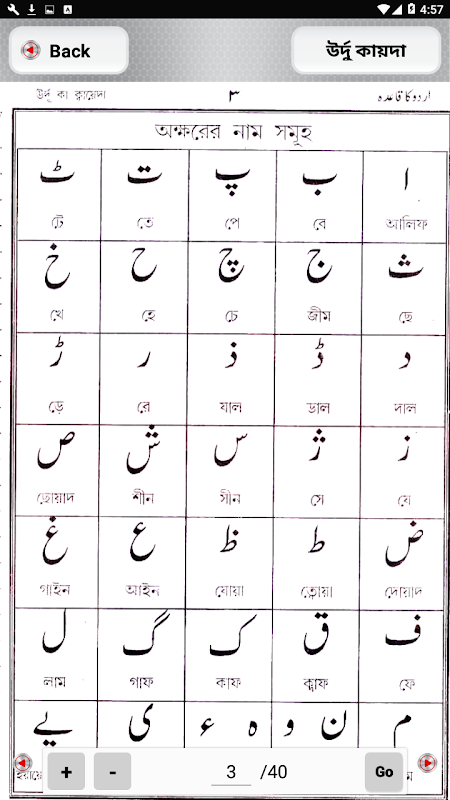 4:57
Back
উর্দু কায়দা
উর্দূ কা ক্বায়েদা ٣ اردو کا قاعدہ
অক্ষরের নাম সমূহ
ا ب پ ت ٹ
টে তে পে বে আলিফ
ث ج چ ح خ
খে হে চে জীম ছে
د ڈ ذ ر ڑ
ড়ে রে যাল ডাল দাল
ز ژ س ش ص
ছোয়াদ শীন সীন সে যে
ض ط ظ ع غ
গাইন আইন যোয়া ত্বোয়া দোয়াদ
ف ق ک گ ل
লাম গাফ কাফ ক্বাফ ফে
م ن و ہ ء ی یے
+ - 3 /40 Go